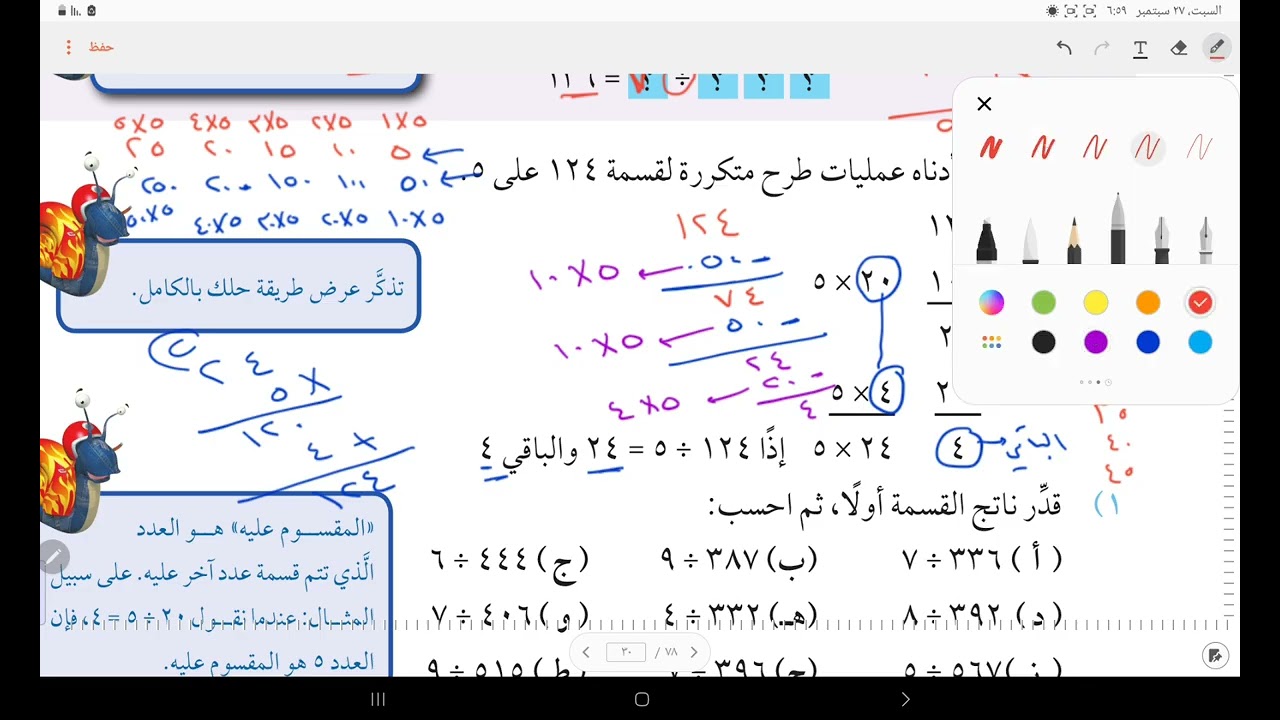 السبت، ٢٧ سبتمبر ٦:٥٩
حفظ
؟ ؟ ؟ ÷ ؟ = ١٣٦
١×٥ ٢×٥ ٣×٥ ٤×٥ ٥×٥
٥ ١٠ ١٥ ٢٠ ٢٥
٥٠ ١٠٠ ١٥٠ ٢٠٠ ٢٥٠
١٠×٥ ٢٠×٥ ٣٠×٥ ٤٠×٥ ٥٠×٥
أدناه عمليات طرح متكررة لقسمة ١٢٤ على ٥.
١٢٤
٢٠ × ٥
- ٥٠ ← ١٠×٥
٧٤
- ٥٠ ← ١٠×٥
٢٤
٤ × ٥
- ٢٠ ← ٤×٥
٤
الباقي ← ٤
٢٤ × ٥ إذًا ١٢٤ ÷ ٥ = ٢٤ والباقي ٤
تذكَّر عرض طريقة حلك بالكامل.
٢٤
× ٥
١٢٠
+ ٤
١٢٤
٤٠
٤٥
١) قدِّر ناتج القسمة أولًا، ثم احسب:
( أ ) ٣٣٦ ÷ ٧ (ب) ٣٨٧ ÷ ٩ (ج) ٤٤٤ ÷ ٦
(د) ٣٩٢ ÷ ٨ (هـ) ٣٣٢ ÷ ٤ (و) ٤٠٦ ÷ ٧
(ز) ٥٦٧ ÷ ٥ (ح) ٣٩٦ ÷ ٧ (ط) ٥١٥ ÷ ٩
«المقسـوم عليه» هـو العدد
الَّذي تتم قسمة عدد آخر عليه. على سبيل
المثـال: عندما نقـول ٢٠ ÷ ٥ = ٤، فإن
العدد ٥ هو المقسوم عليه.
٣٠ / ٧٨